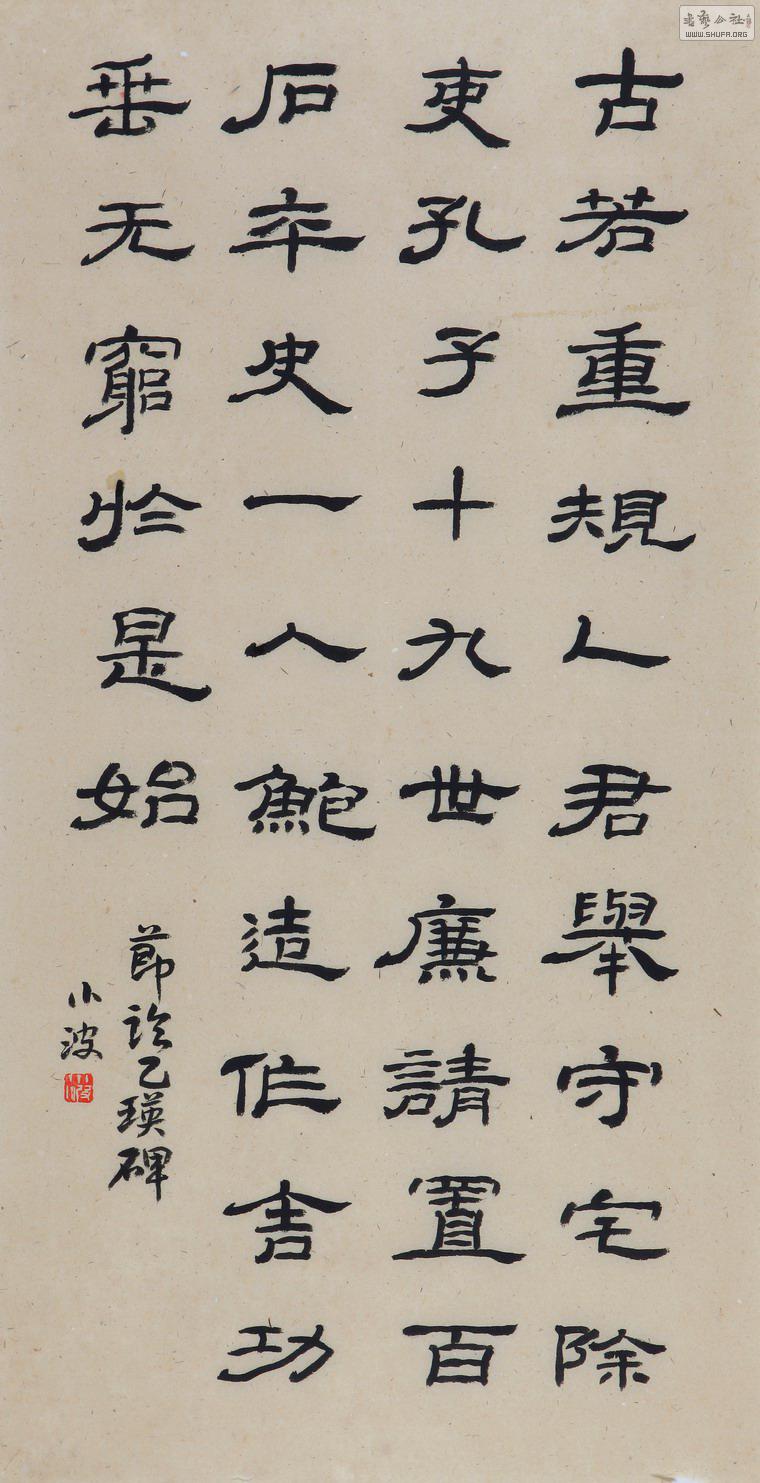 古若重規人君舉守宅除
吏孔子十九世廉請置百
石卒史一人鮑造作舍功
垂无竆於是始
節臨乙瑛碑
小波
書藝公社
WWW.SHUFA.ORG